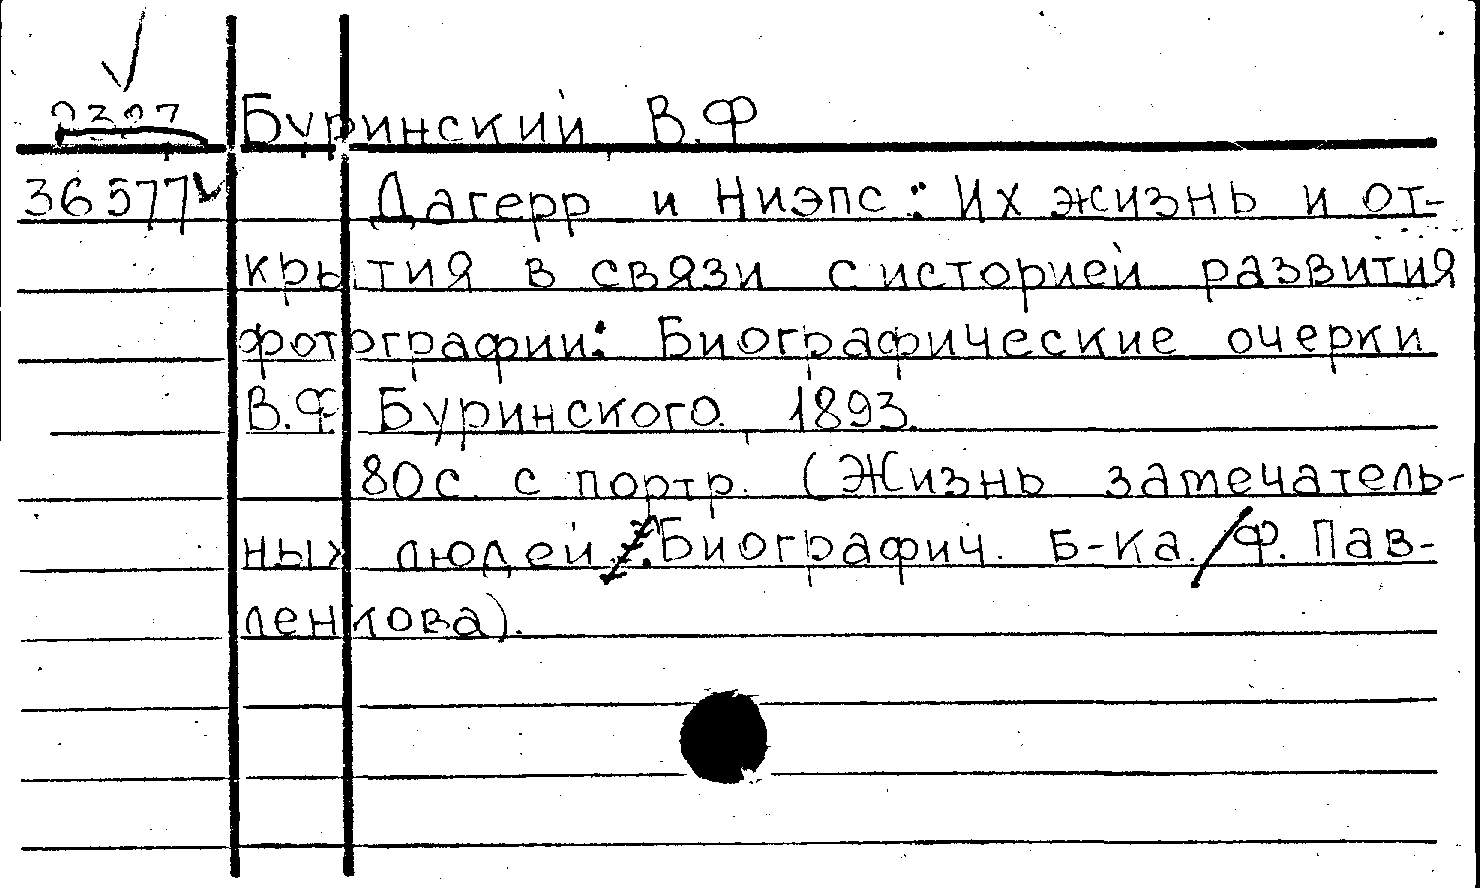 Буринский В.Ф
36577 Дагерр и Ниэпс: Их жизнь и от-
крытия в связи с историей развития
фотографии: Биографические очерки
В.Ф Буринского. 1893.
80с. с портр. (Жизнь замечатель-
ных людей. Биографич. Б-ка. Ф. Пав-
ленкова).